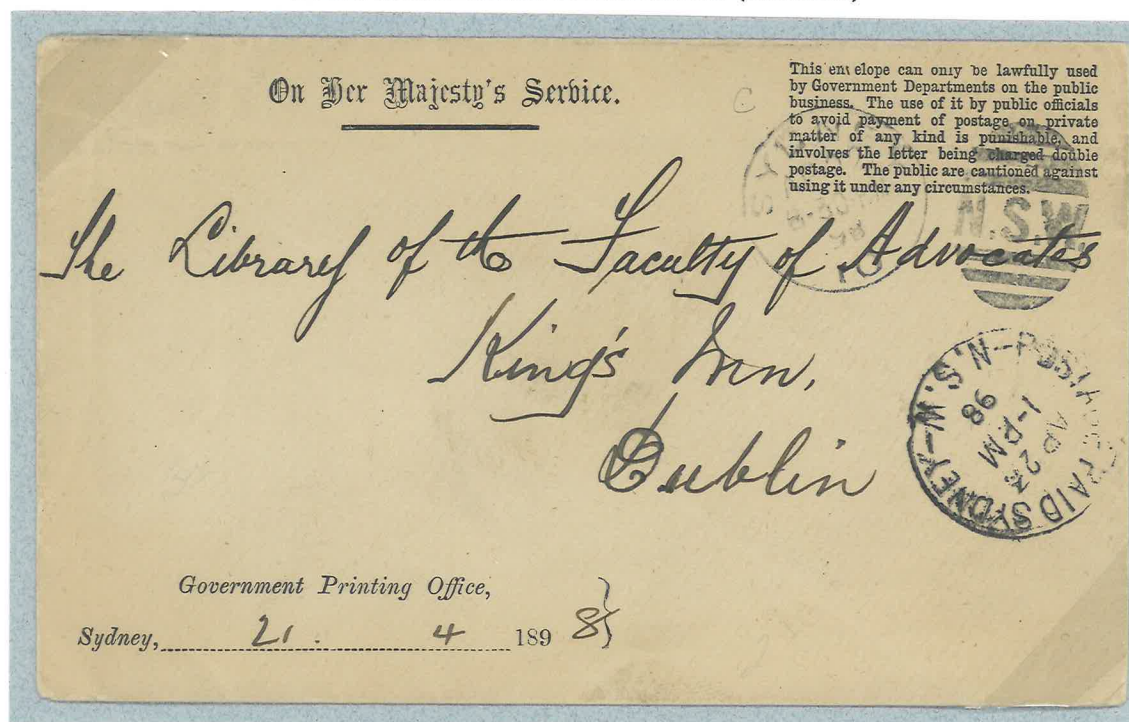 On Her Majesty's Service.
This envelope can only be lawfully used
by Government Departments on the public
business. The use of it by public officials
to avoid payment of postage on private
matter of any kind is punishable, and
involves the letter being charged double
postage. The public are cautioned against
using it under any circumstances.
N.S.W.
The Library of the Faculty of Advocates
King's Inn,
Dublin
POSTAGE PAID SYDNEY-N.S.W-
1-PM
98
Government Printing Office,
Sydney, 21. 4 1898